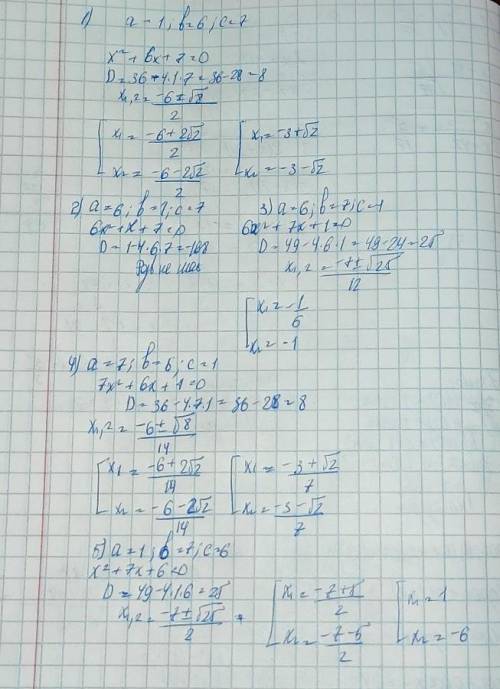 1) a-1, b=6; c=7
x² + 6x + 7 = 0
D = 36 - 4.1.7 = 36-28 = 8
x1,2 = (-6 ± √8)/2
[ x1 = (-6 + 2√2)/2 [ x1 = -3+√2
x2 = (-6 - 2√2)/2 x2 = -3-√2
2) a=6; b=1; c=7
6x²+x+7=0
D=1-4.6.7=-168
3) a=6; b=7; c=1
6x²+7x+1=0
D=49-4.6.1=49-24=25
x1,2 = (-7 ± √25)/12
[ x1 = -1/6
x2 = -1
4) a=7; b=6; c=1
7x² + 6x + 1 = 0
D = 36 - 4.7.1 = 36-28 = 8
x1,2 = (-6 ± √8)/14
[ x1 = (-6 + 2√2)/14 [ x1 = (-3 + √2)/7
x2 = (-6 - 2√2)/14 x2 = (-3 - √2)/7
5) a=1; b=7; c=6
x²+7x+6=0
D=49-4.1.6=25
x1,2 = (-7 ± √25)/2
[ x1 = (-7+5)/2 [ x1 = 1
x2 = (-7-5)/2 x2 = -6